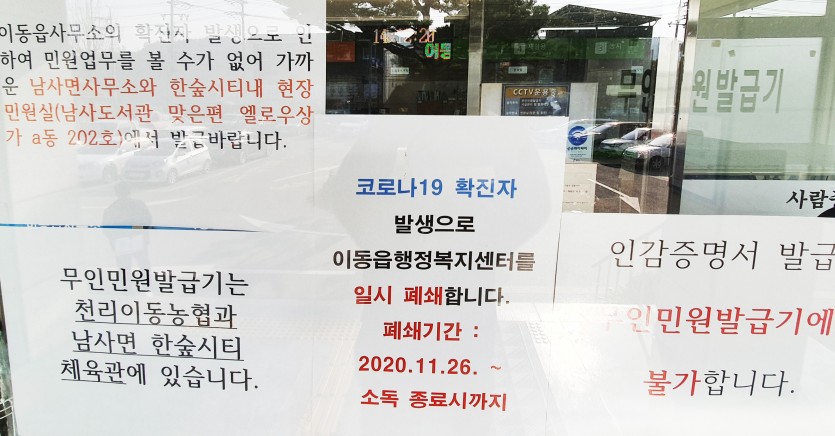 이동읍사무소의 확진자 발생으로 인
하여 민원업무를 볼 수가 없어 가까
운 남사면사무소와 한숲시티내 현장
민원실(남사도서관 맞은편 옐로우상
가 a동 202호)에서 발급바랍니다.
무인민원발급기는
천리이동농협과
남사면 한숲시티
체육관에 있습니다.
코로나19 확진자
발생으로
이동읍행정복지센터를
일시 폐쇄합니다.
폐쇄기간 :
2020.11.26. ~
소독 종료시까지
CCTV운용중
무인민원발급기
인감증명서 발급
무인민원발급기에
불가합니다.